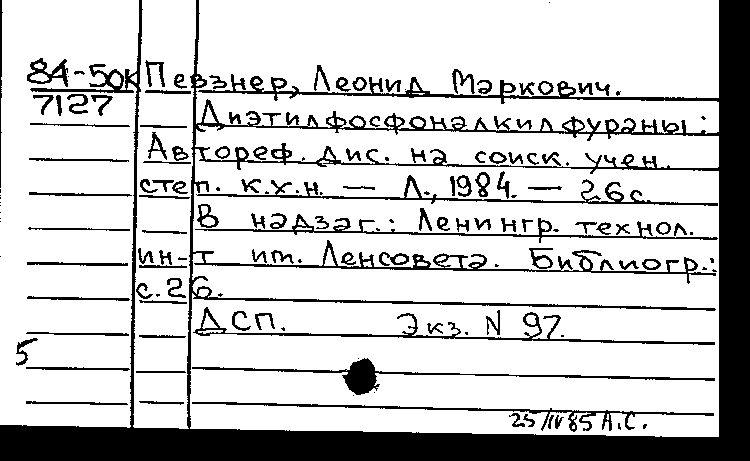 84-50К Певзнер, Леонид Маркович.
7127 Диэтилфосфоналкилфураны:
Автореф. дис. на соиск. учен.
степ. к.х.н. — Л., 1984. — 26 с.
В надзаг.: Ленингр. технол.
ин-т им. Ленсовета. Библиогр.:
с. 26.
ДСП. Экз. N 97.
5
25/IV 85 А.С.